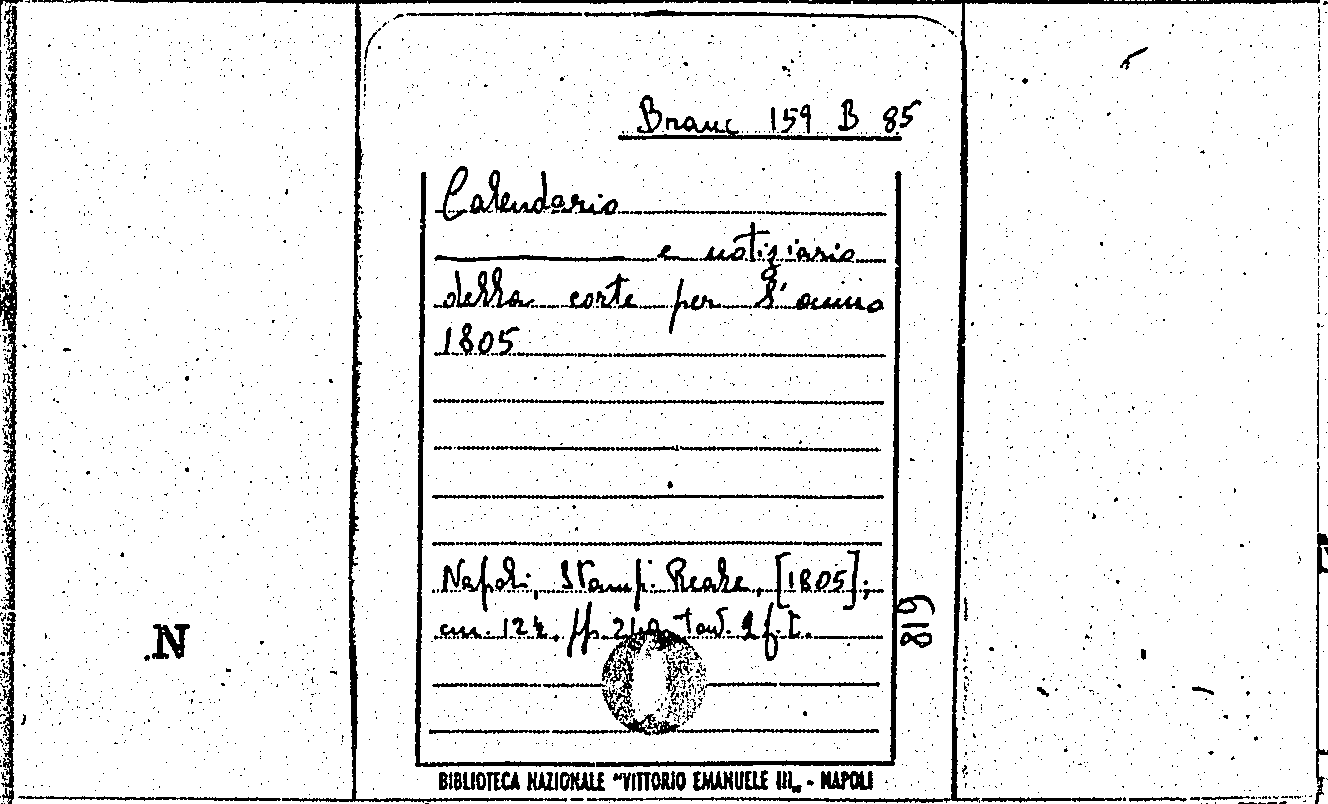 Branc 159 B 85
Calendario
e notiziario
della corte per l'anno
1805
Napoli, Stamp. Reale, [1805];
cm. 12½, pp. tav. 2 f.t.
819
N
BIBLIOTECA NAZIONALE "VITTORIO EMANUELE III„ - NAPOLI